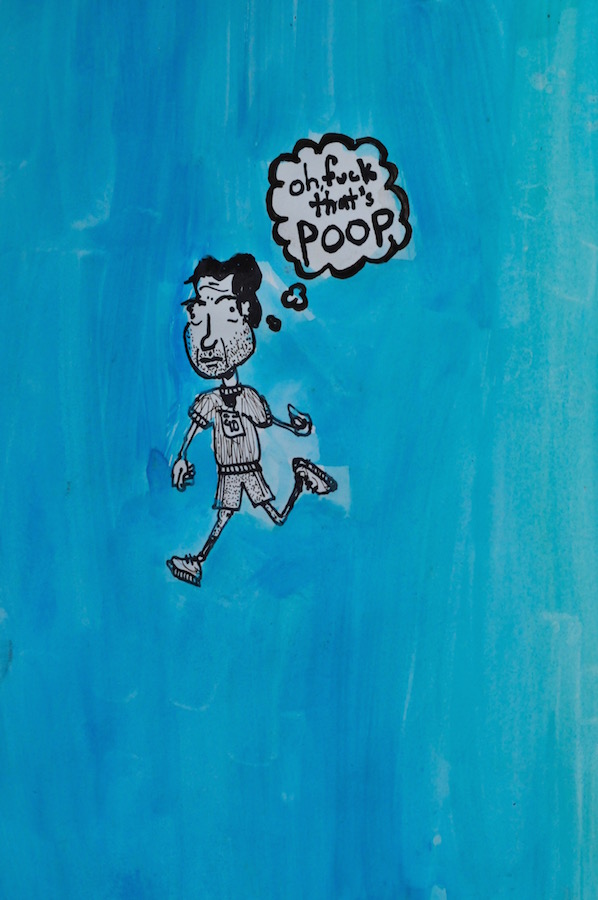 oh, fuck
that's
POOP.
40